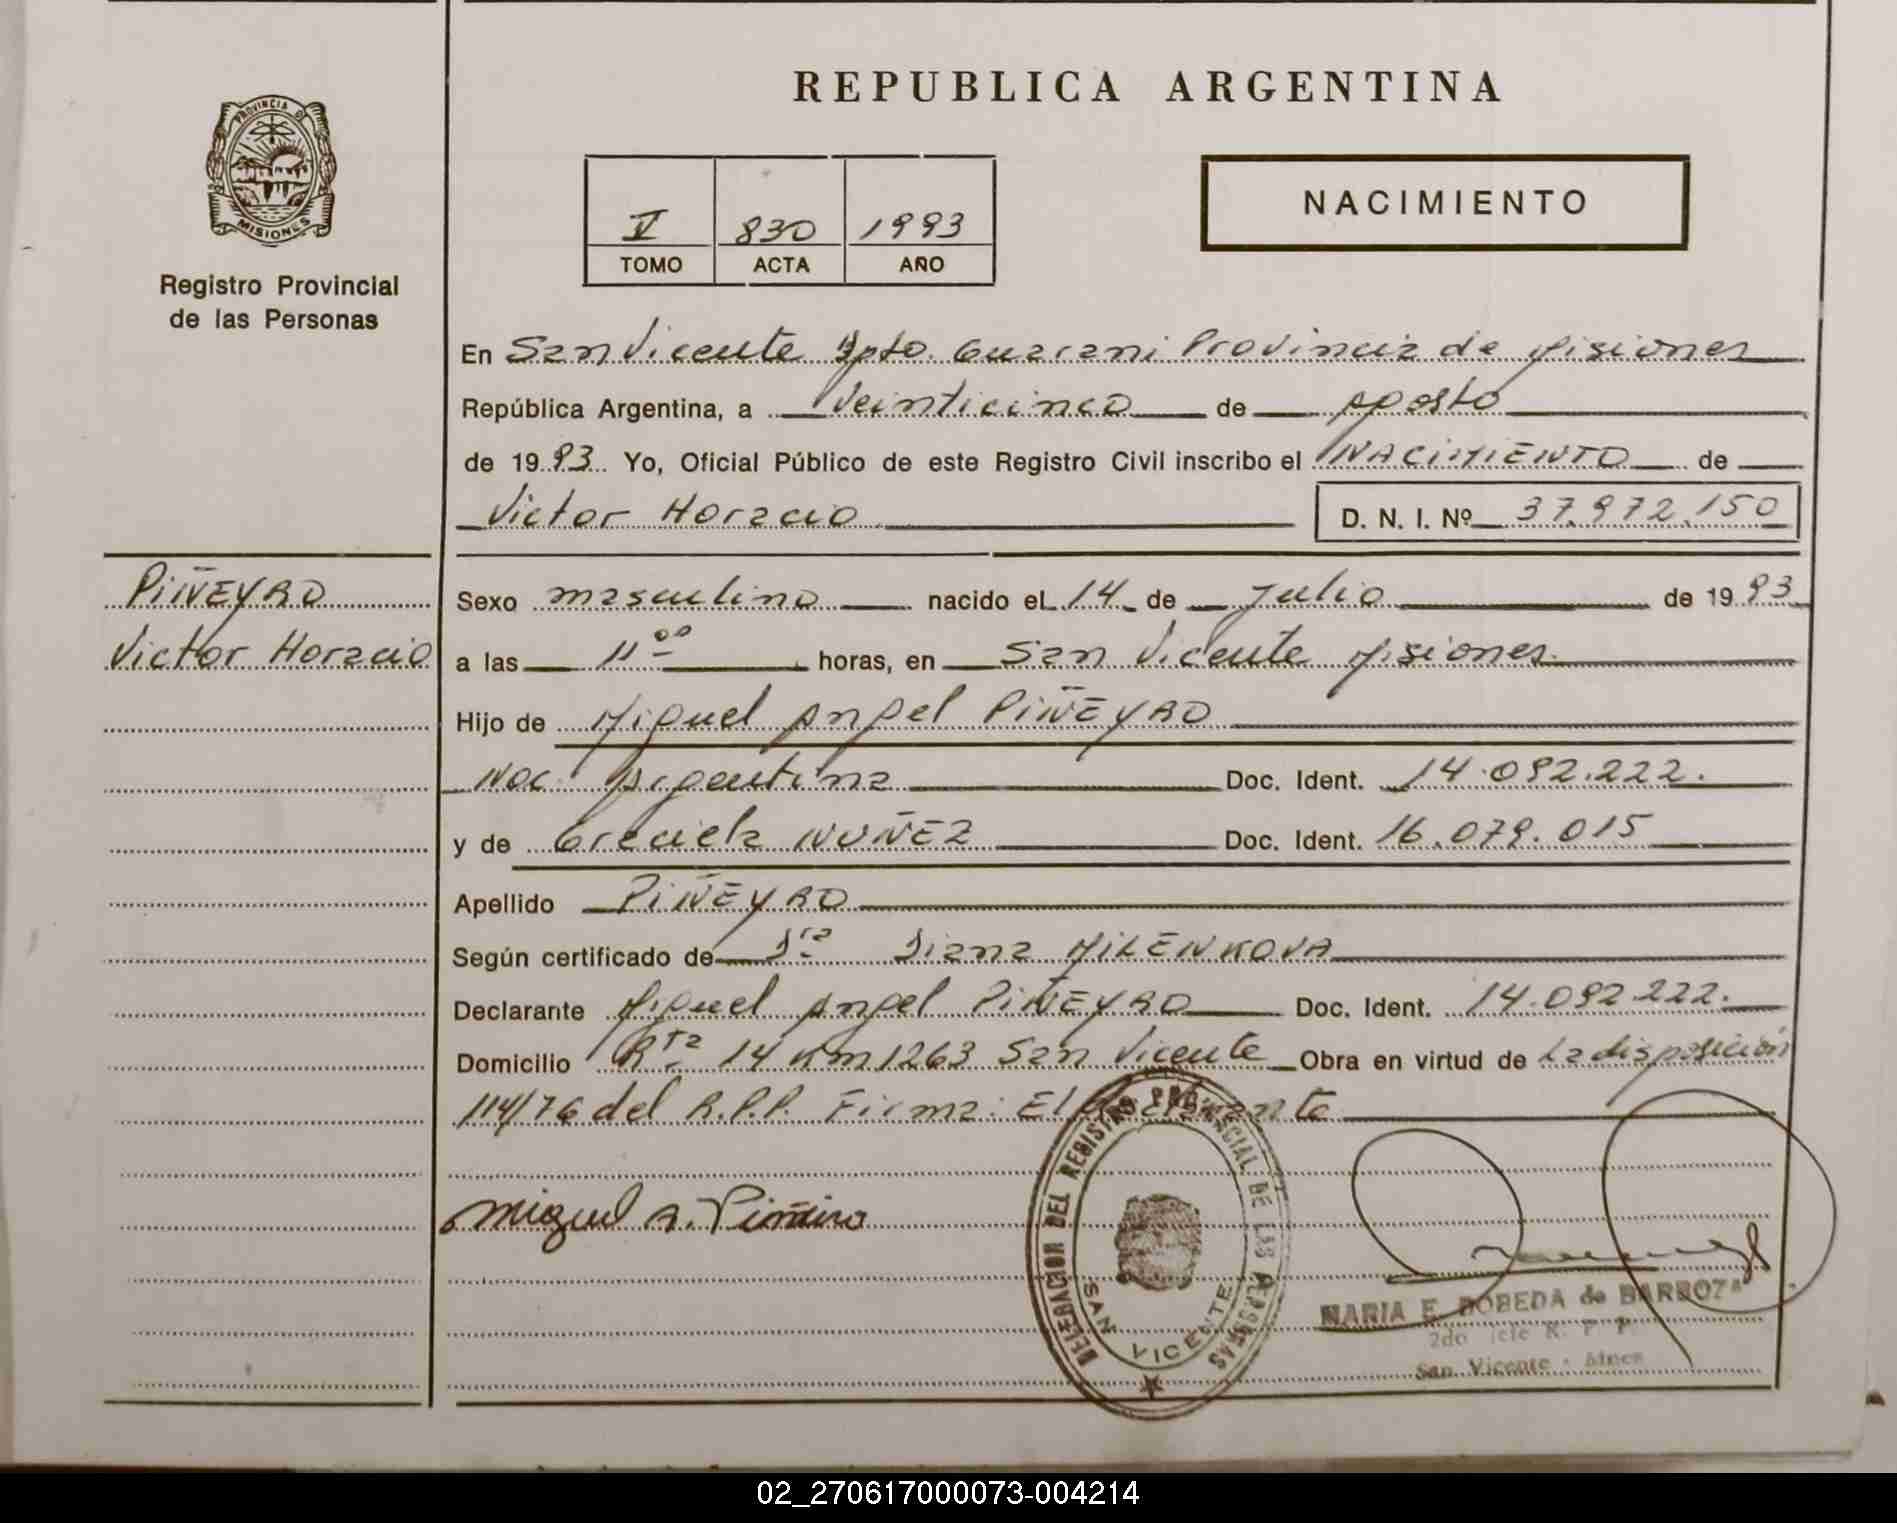 REPUBLICA ARGENTINA
PROVINCIA DE
MISIONES
Registro Provincial
de las Personas
V 830 1993
TOMO ACTA AÑO
NACIMIENTO
En San Vicente Dpto. Guarani Provincia de Misiones
República Argentina, a veinticinco de Agosto
de 1993 Yo, Oficial Público de este Registro Civil inscribo el NACIMIENTO de
Victor Horacio D. N. I. Nº 37.972.150
PIÑEYRO
Victor Horacio
Sexo masculino nacido el 14 de Julio de 1993
a las 11°° horas, en San Vicente Misiones
Hijo de Miguel Angel PIÑEYRO
Nac. Argentina Doc. Ident. 14.092.222.
y de Graciela NUÑEZ Doc. Ident. 16.079.015
Apellido PIÑEYRO
Según certificado de Dra Diana MILENKOVA
Declarante Miguel Angel PIÑEYRO Doc. Ident. 14.092.222.
Domicilio Rta 14 Km 1263 San Vicente Obra en virtud de La disposición
114/76 del R.P.P. Firma: El declarante
Miguel A. Piñeiro
DELEGACION DEL REGISTRO PROVINCIAL DE LAS PERSONAS
SAN VICENTE
MARIA E. BOBEDA de BARBOZA
2do Jefe R. P. P.
San Vicente - Mnes
02_270617000073-004214